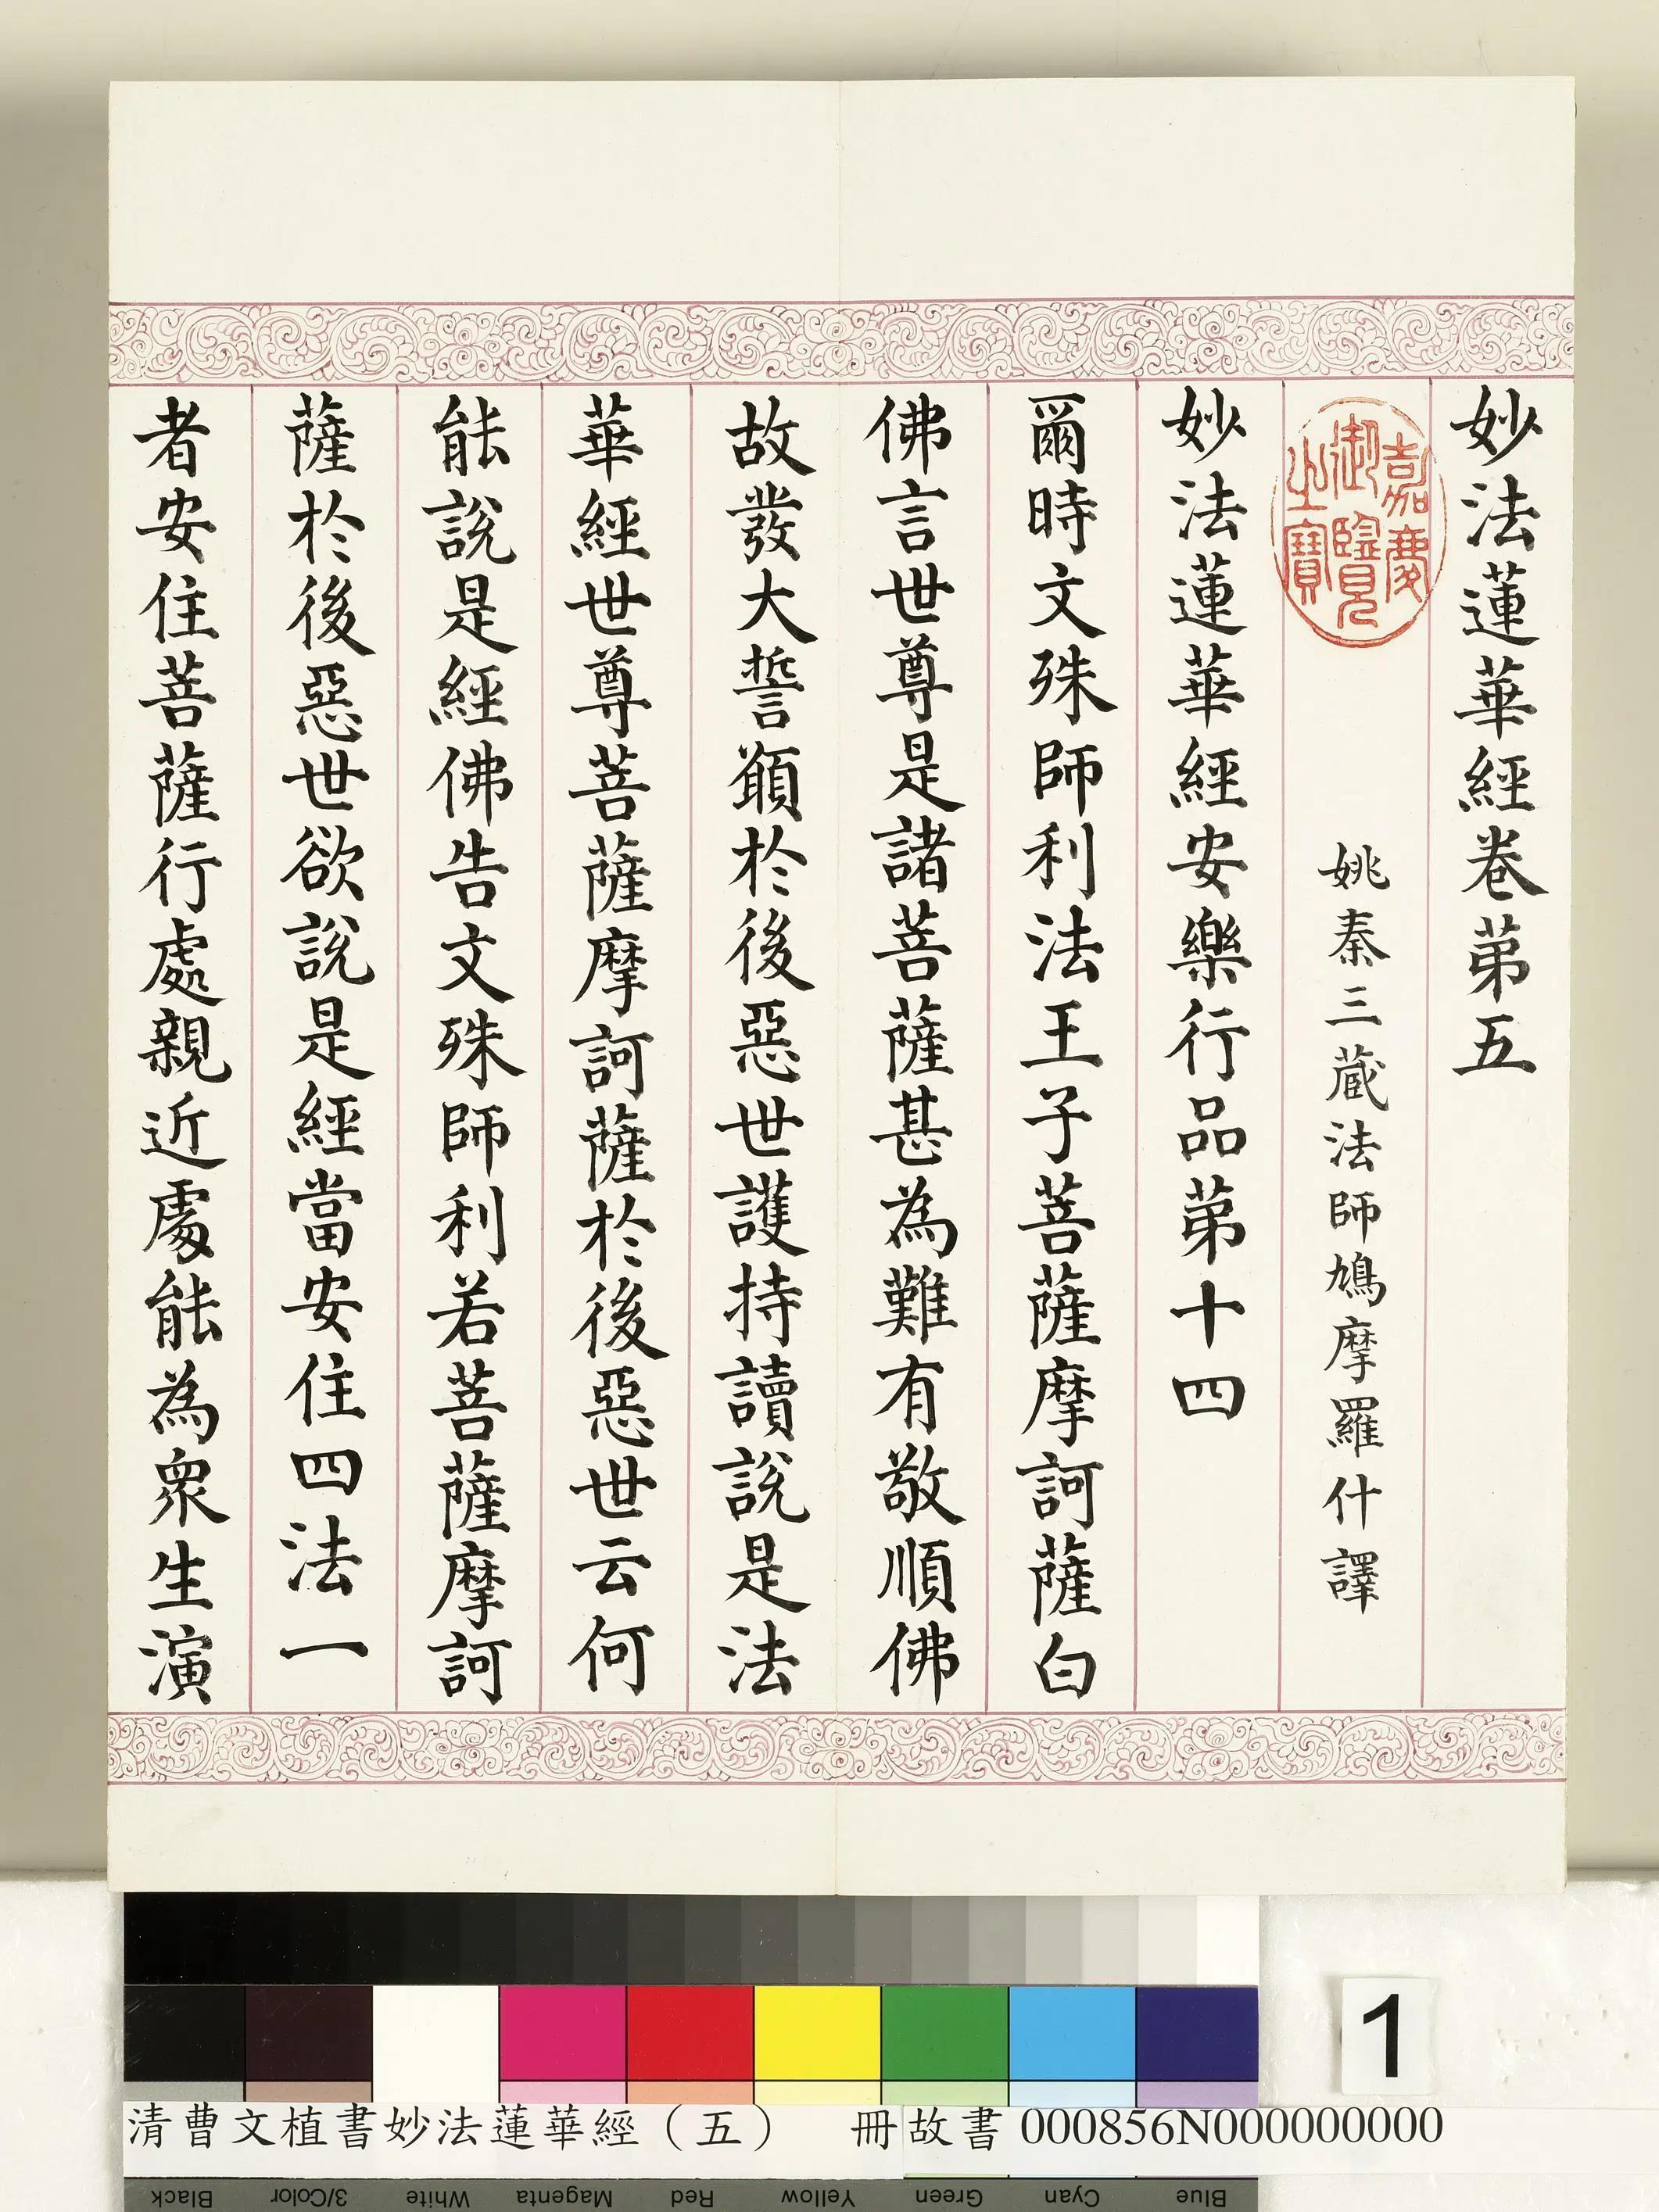 妙法蓮華經卷苐五
嘉慶御覽之寶
姚秦三蔵法師鳩摩羅什譯
妙法蓮華經安樂行品苐十四
爾時文殊師利法王子菩薩摩訶薩白
佛言世尊是諸菩薩甚為難有敬順佛
故發大誓願於後惡世護持讀說是法
華經世尊菩薩摩訶薩於後惡世云何
能說是經佛告文殊師利若菩薩摩訶
薩於後惡世欲說是經當安住四法一
者安住菩薩行處親近處能為衆生演
1
清曹文植書妙法蓮華經（五） 冊故書 000856N000000000
Black 3/Color White Magenta Red Yellow Green Cyan Blue